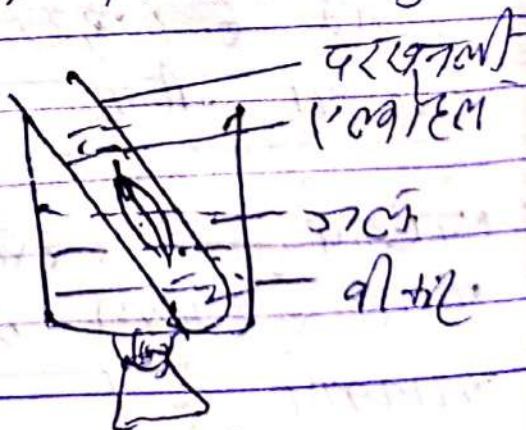 परखनली
एल्कोहल
जल
बीकर.